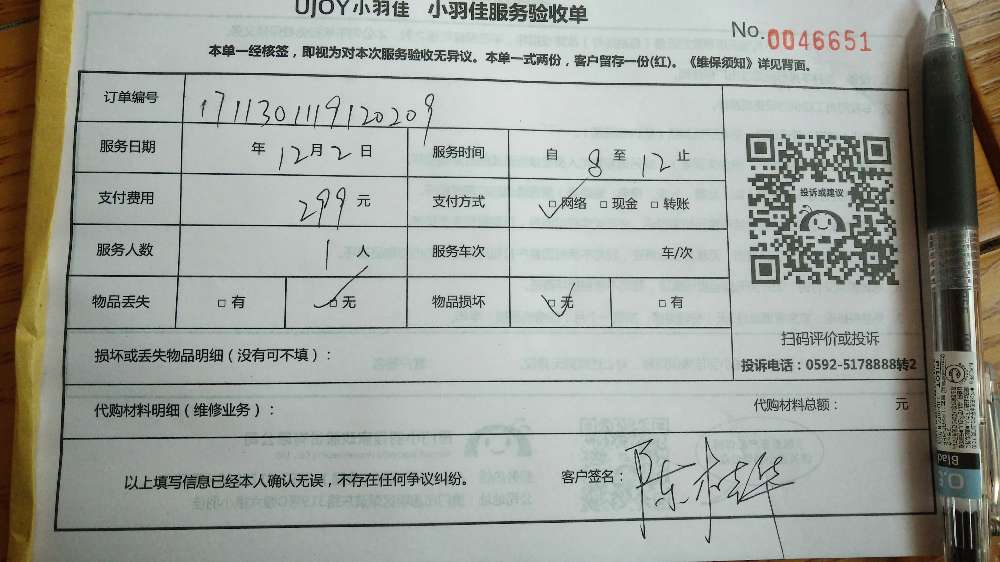 UJOY小羽佳 小羽佳服务验收单
No.0046651
本单一经核签，即视为对本次服务验收无异议。本单一式两份，客户留存一份(红)。《维保须知》详见背面。
订单编号 1711301119120209
服务日期 年 12月2日 服务时间 自 8 至 12 止
支付费用 299 元 支付方式 □网络 □现金 □转账
投诉或建议
服务人数 1 人 服务车次 车/次
物品丢失 □有 □无 物品损坏 □无 □有
扫码评价或投诉
损坏或丢失物品明细（没有可不填）：
投诉电话：0592-5178888转2
代购材料明细（维修业务）： 代购材料总额： 元
以上填写信息已经本人确认无误，不存在任何争议纠纷。 客户签名：